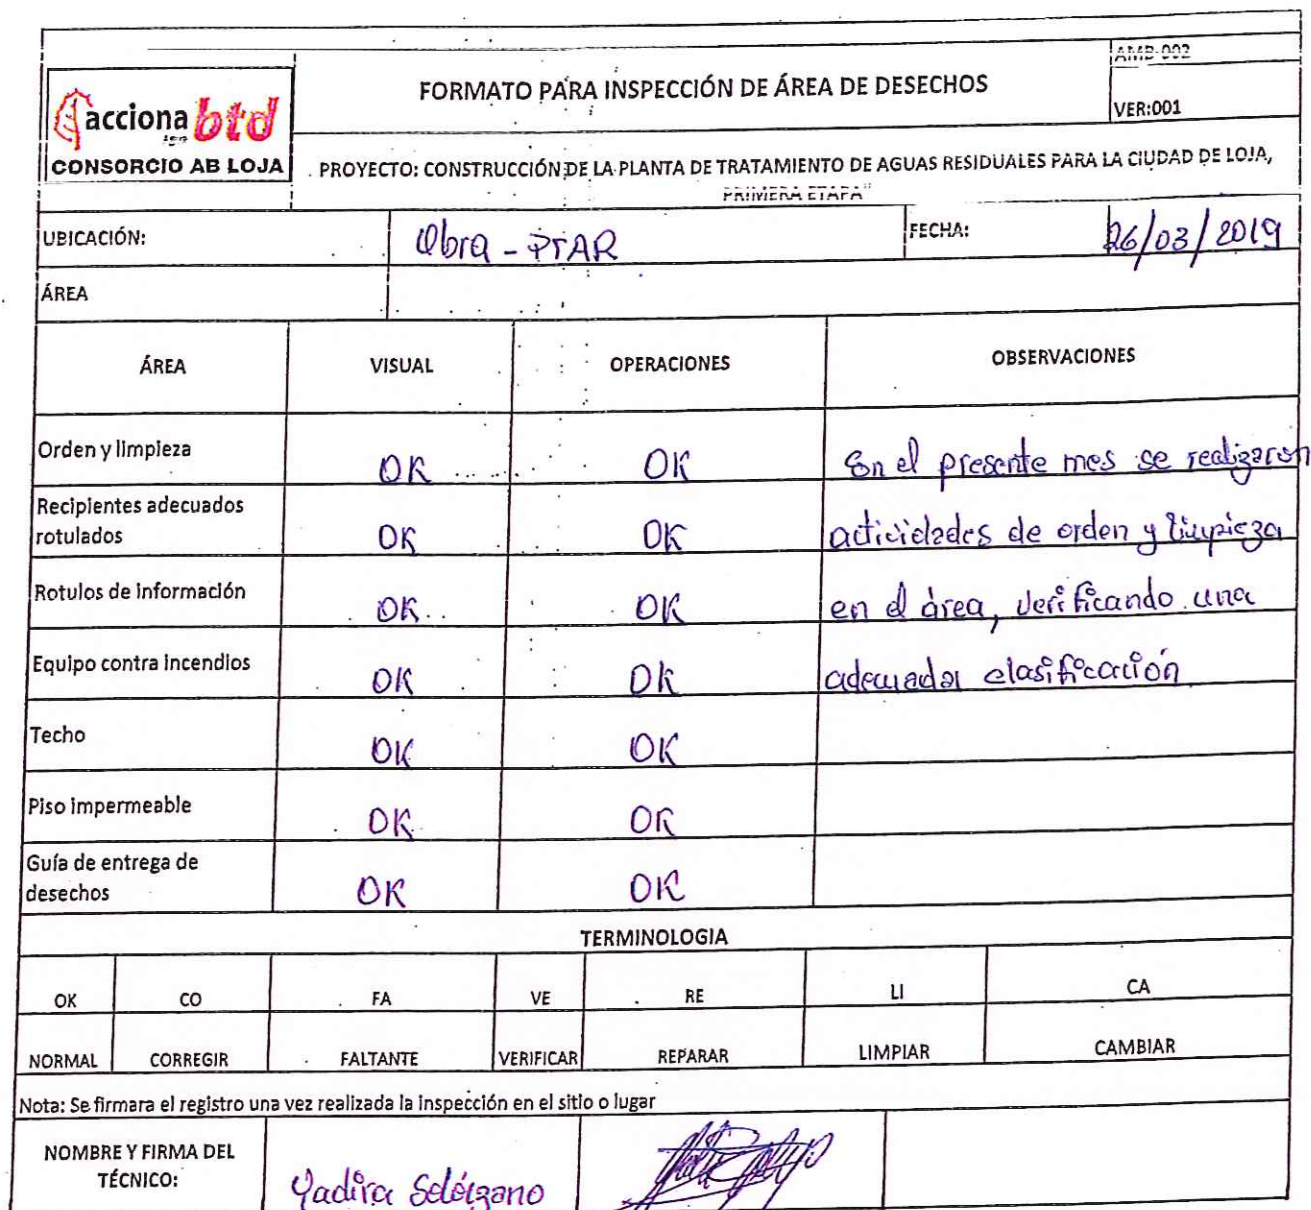 acciona btd
CONSORCIO AB LOJA
FORMATO PARA INSPECCIÓN DE ÁREA DE DESECHOS
AMB-002
VER:001
PROYECTO: CONSTRUCCIÓN DE LA PLANTA DE TRATAMIENTO DE AGUAS RESIDUALES PARA LA CIUDAD DE LOJA,
PRIMERA ETAPA"
UBICACIÓN: Obra - PTAR FECHA: 26/03/2019
ÁREA
ÁREA VISUAL OPERACIONES OBSERVACIONES
Orden y limpieza OK OK En el presente mes se realizaron
Recipientes adecuados
rotulados OK OK actividades de orden y limpieza
Rotulos de información OK OK en el área, verificando una
Equipo contra incendios OK OK adecuada clasificación
Techo OK OK
Piso impermeable OK OK
Guía de entrega de
desechos OK OK
TERMINOLOGIA
OK CO FA VE RE LI CA
NORMAL CORREGIR FALTANTE VERIFICAR REPARAR LIMPIAR CAMBIAR
Nota: Se firmara el registro una vez realizada la inspección en el sitio o lugar
NOMBRE Y FIRMA DEL
TÉCNICO: Yadira Solórzano